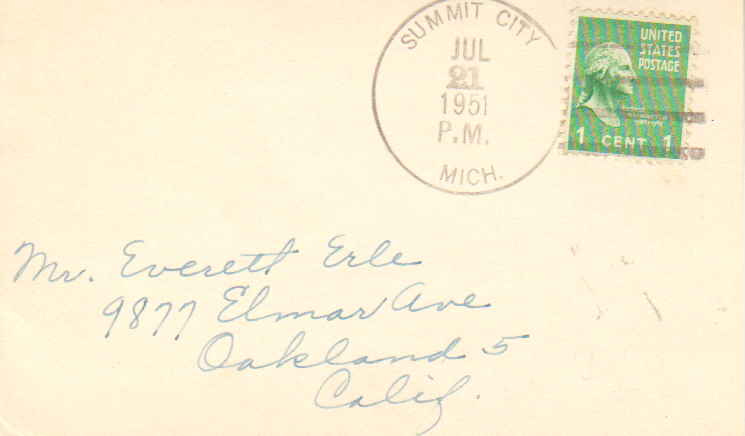 SUMMIT CITY
JUL
21
1951
P.M.
MICH.
UNITED
STATES
POSTAGE
1 CENT 1
Mr. Everett Erle
9877 Elmar Ave
Oakland 5
Calif.